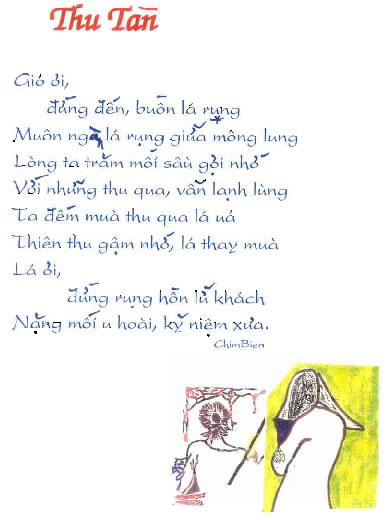 Thu Tàn
Gió ơi,
đừng đến, buồn lá rụng
Muôn ngả lá rụng giữa mông lung
Lòng ta trăm mối sầu gợi nhớ
Với những thu qua, vẫn lạnh lùng
Ta đếm mùa thu qua lá uá
Thiên thu gậm nhớ, lá thay mùa
Lá ơi,
đừng rụng hồn lữ khách
Nặng mối u hoài, kỷ niệm xưa.
ChimBien